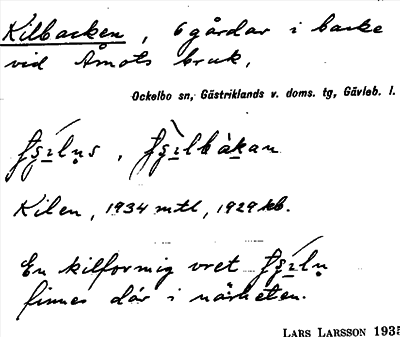 Kilbacken, 6 gårdar i backe
vid Åmots bruk.
Ockelbo sn, Gästriklands v. doms. tg, Gävleb. l.
Kilen, 1934 mtl, 1929 kb.
En kilformig vret
finnes där i närheten.
LARS LARSSON 1935